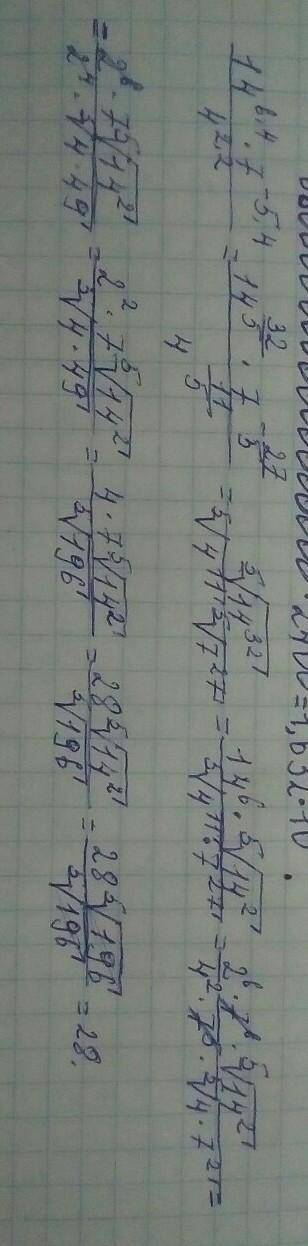 = 1,632 · 10
\frac{14^{6,4} · 7^{-5,4}}{4^{2,2}} = \frac{14^{\frac{32}{5}} · 7^{-\frac{27}{5}}}{4^{\frac{11}{5}}} = \frac{\sqrt[5]{14^{32}}}{\sqrt[5]{4^{11}} \sqrt[5]{7^{27}}} = \frac{14^6 · \sqrt[5]{14^2}}{\sqrt[5]{4^{11} · 7^{27}}} = \frac{2^6 · 7^6 · \sqrt[5]{14^2}}{4^2 · 7^5 · \sqrt[5]{4 · 7^2}} =
= \frac{2^6 · 7 \sqrt[5]{14^2}}{2^4 · \sqrt[5]{4 · 49}} = \frac{2^2 · 7 \sqrt[5]{14^2}}{\sqrt[5]{4 · 49}} = \frac{4 · 7 \sqrt[5]{14^2}}{\sqrt[5]{196}} = \frac{28 \sqrt[5]{14^2}}{\sqrt[5]{196}} = \frac{28 \sqrt[5]{196}}{\sqrt[5]{196}} = 28.